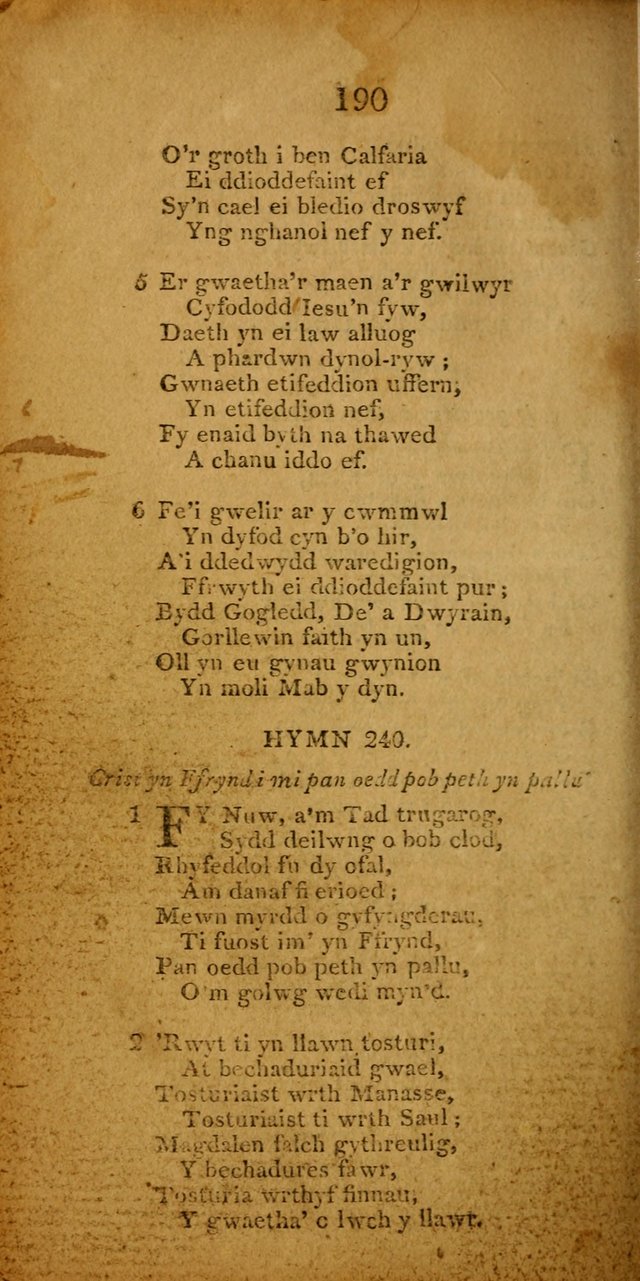 190
O'r groth i ben Calfaria
Ei ddioddefaint ef
Sy'n cael ei bledio droswyf
Yng nghanol nef y nef.
5 Er gwaetha'r maen a'r gwilwyr
Cyfododd Iesu'n fyw,
Daeth yn ei law alluog
A phardwn dynol-ryw ;
Gwnaeth etifeddion uffern,
Yn etifeddion nef,
Fy enaid byth na thawed
A chanu iddo ef.
6 Fe'i gwelir ar y cwmmwl
Yn dyfod cyn b'o hir,
A'i ddedwydd waredigion,
Ffrwyth ei ddioddefaint pur ;
Bydd Gogledd, De' a Dwyrain,
Gorllewin faith yn un,
Oll yn eu gynau gwynion
Yn moli Mab y dyn.
HYMN 240.
Crist yn Ffrynd i mi pan oedd pob peth yn pallu
1 FY Nuw, a'm Tad trugarog,
Sydd deilwng o bob clod,
Rhyfeddol fu dy ofal,
Am danaf fi erioed ;
Mewn myrdd o gyfyngderau,
Ti fuost im' yn Ffrynd,
Pan oedd pob peth yn pallu,
O'm golwg wedi myn'd.
2 'Rwyt ti yn llawn tosturi,
At bechaduriaid gwael,
Tosturiaist wrth Manasse,
Tosturiaist ti wrth Saul ;
Magdalen falch gythreulig,
Y bechadures fawr,
Tosturia wrthyf finnau,
Y gwaetha' o lwch y llawr.